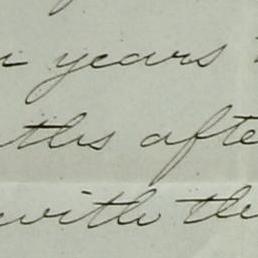 years
ths afte
with the